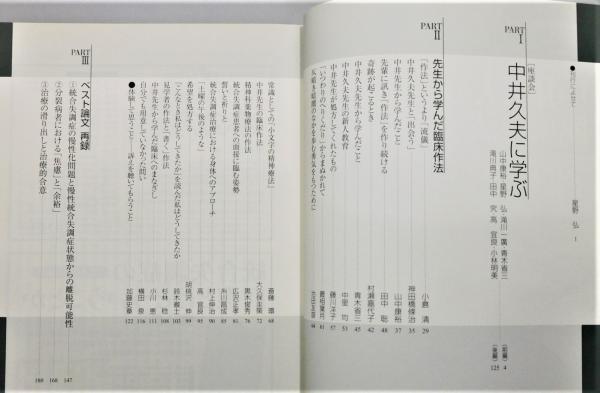 ●刊行によせて 星野 弘 1
PART I
［座談会］
中井久夫に学ぶ
山中康裕・星野 弘・滝川一廣・青木省三
滝川典子・田中 究・高 宜良・小林明美
［前篇］ 4
［後篇］ 125
PART II
先生から学んだ臨床作法
「作法」というより「流儀」 小倉 清 29
中井久夫先生と「出会う」 神田橋條治 35
中井先生から学んだこと 山中康裕 37
先輩に訊き「作法」を作り続ける 田中 聡 48
奇跡が起こるとき 村瀬嘉代子 42
中井久夫先生の新人教育 青木省三 45
中井先生が処方してくれたもの 中里 均 53
「いつわりのへりくだり」からまぬがれて 藤川洋子 57
反暗き暗闇のなかを歩む勇気をもつために 最相葉月 61
常識としての「小文字の精神療法」 斎藤 環 68
中井先生の臨床作法 大久保圭策 72
精神科薬物療法の作法 黒木俊秀 76
統合失調症患者への面接に臨む姿勢 広沢正孝 81
誓いと祈り 糸川昌成 85
統合失調症治療における身体へのアプローチ 村上伸治 90
「土曜の午後のような」 高 宜良 95
希望を処方する 胡桃沢 伸 99
「こんなとき私はどうしてきたか」を読んだ私はどうしてきたか 鈴木瑞士 103
見学者の作法と「書く」作法 杉林 稔 108
中井先生から学んだ臨床へのまなざし 小川 恵 111
自分でも用意していなかった問い 横田 泉 116
●体験して思うこと——訴えを聴いてもらうこと 加藤史章 122
PART III
ベスト論文、再録
①統合失調症の慢性化問題と慢性統合失調症状態からの離脱可能性 147
②分裂病者における「焦慮」と「余裕」 168
③治療の滑り出しと治療的合意 180